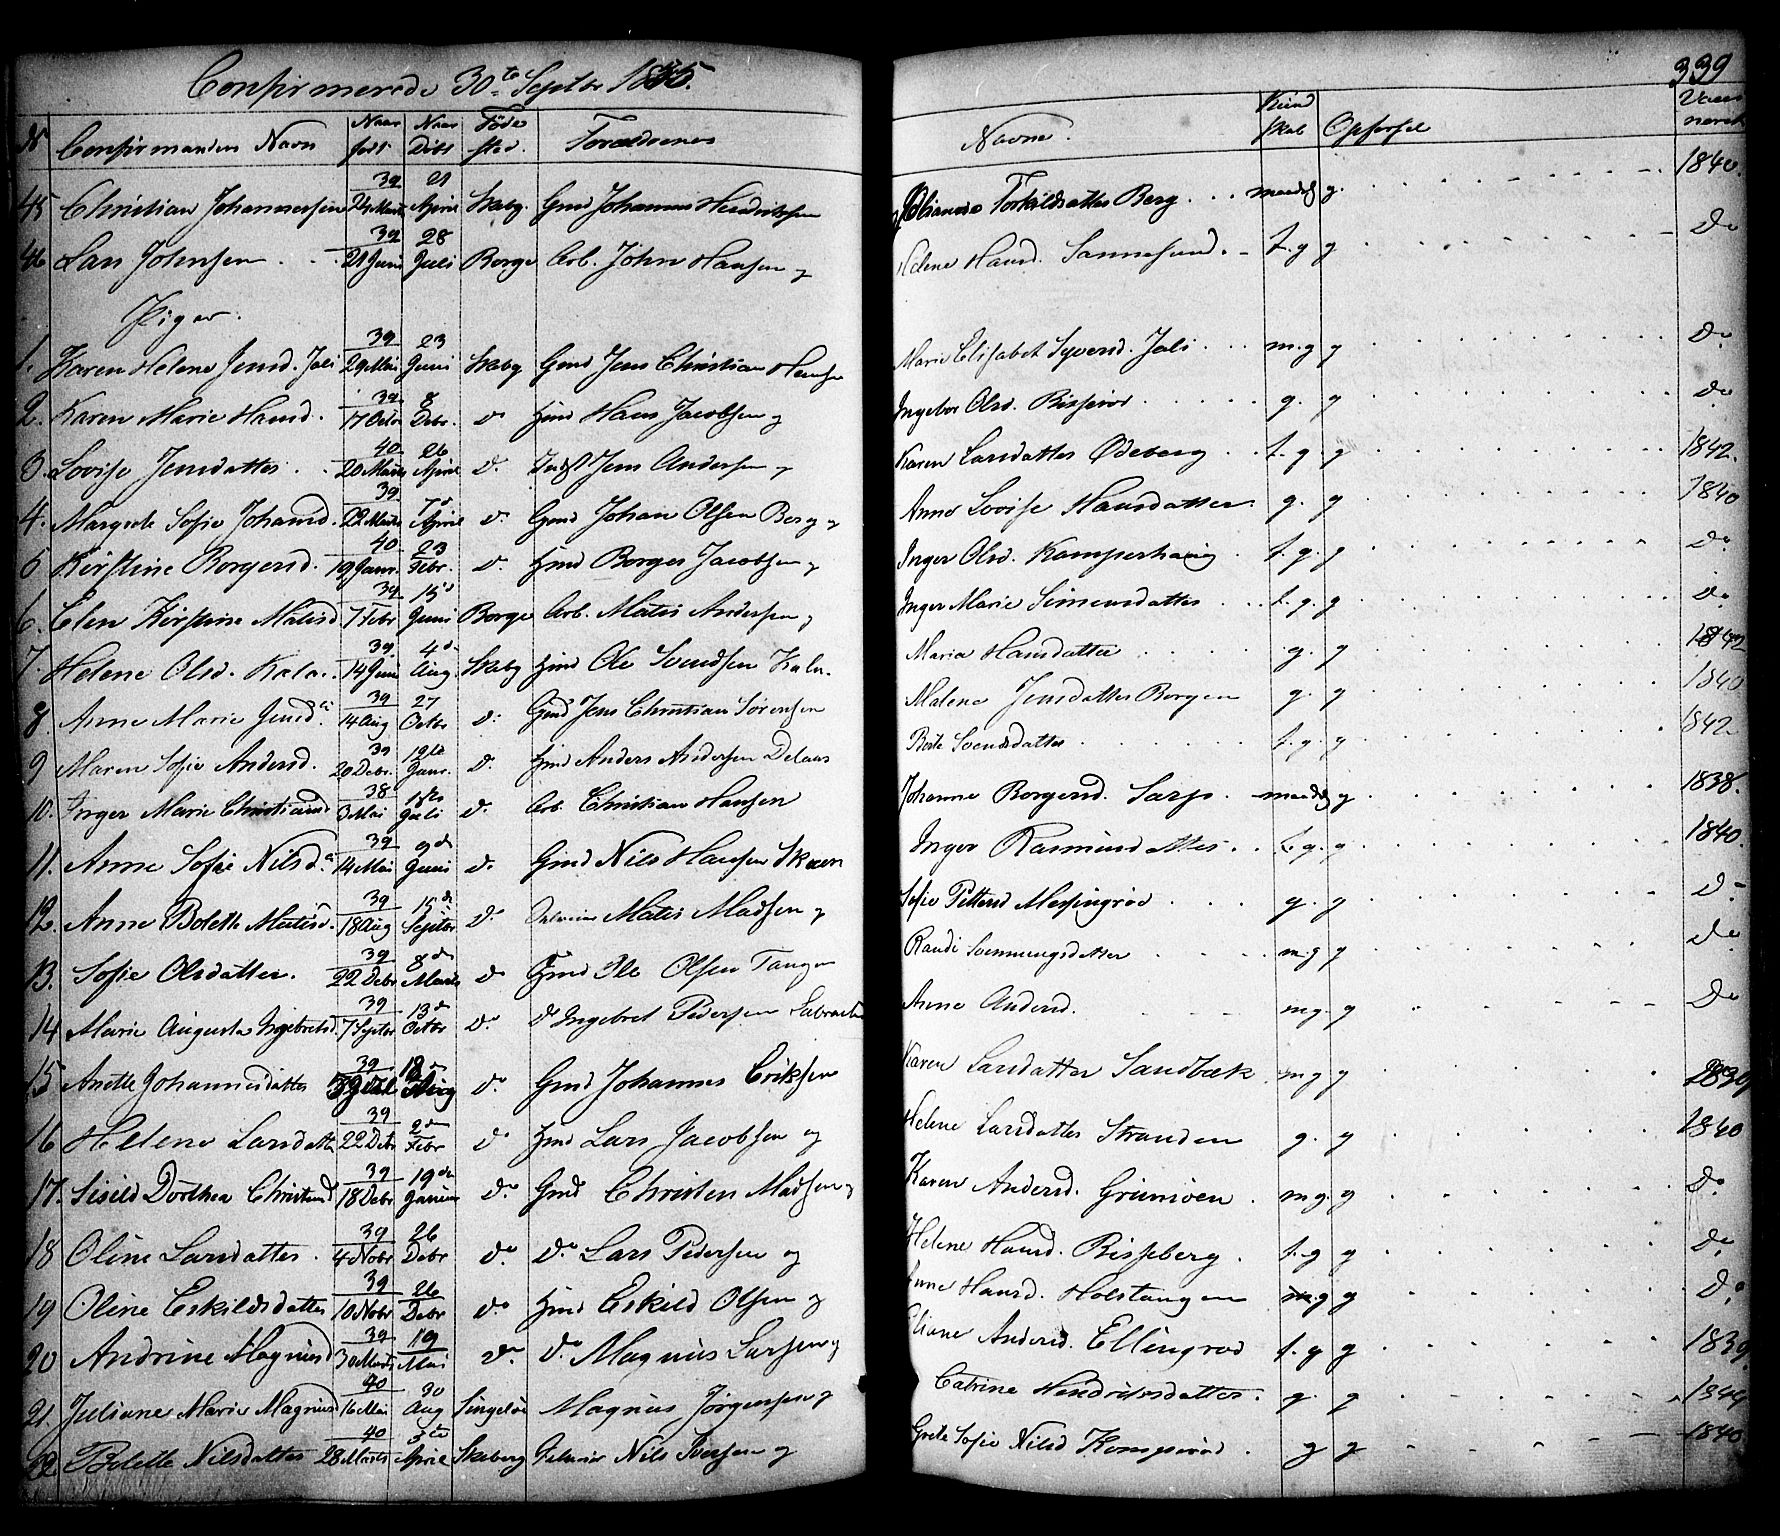 Confirmerede 30te Septbr 1855.
339
No Confirmandens Navn Naar født Naar Døbt Føde sted. Forældrenes Navne. Kund skab Opførsel Vacci neret
45 Christian Johannessen 39 24 Marts 21 April Skaby. Gmd Johannes Hendriksen Torkildsdatter Berg maadl g. 1840.
46 Lars Johnsen 39 21 Juni 28 Juli Borge Arb. John Hansen og Helene Hansd. Sannesund. t. g g Do
Piger.
1. Karen Helene Jensd. Jali 39 29 Mai 23 Juni Skaby Gmd Jens Christian Marie Elisabet Syversd. Jali m.g g Do
2. Karen Marie Hansd. 39 17 Octbr 8 Debr. Do Hmd Hans Jacobsen og Ingebor Olsd. g. g Do
3. Lovise Jensdatter 40 20 Marts 26 April Do. Indst Jens Andersen og Karen Larsdatter Ødeberg t. g. g 1842.
4. Margrete Sofie Johansd. 39 22 Marts 7d April Do. Gmd Johan Olsen Berg og Anne Lovise Hansdatter g. g 1840
5 Kirstine Borgersd. 40 19 Janr. 23 Febr. Do. Hmd Borger Jacobsen og Inger Olsd. Kamperhaug t. g. g Do
6. Elen Kirstine Matisd 39 7 Febr 15d Juni Borge Arb. Matis Andersen og Inger Marie Simensdatter t. g. g Do
7. Helene Olsd. Kala 39 14 Juni 4d Aug. Skaby Hmd Ole Svendsen Kala. Maria Hansdatter g. g 1842
8. Anne Marie Jensda 39 14 Aug 27 Octbr Do Gmd Jens Christian Sørensen Malene Jensdatter Borgen g. g 1840
9 Maren Sofie Andersd. 39 20 Debr. 19de Janr. Do. Hmd Anders Andersen Delaas Berte Svendsdatter t. g. g 1842
10. Inger Marie Christiansd 38 3 Mai Juli Do. Arb. Christian Hansen Johanne Borgersd. Sarp. maadlg g 1838.
11. Anne Sofie Nilsda 39 14 Mai 9d Juni Do. Gmd Nils Hansen Skaven Inger Rasmusdatter t. g. g 1840.
12. Anne Bolette Matisd. 39 18 Aug 15de Septbr Do Matis Madsen og Sofie Pettersd Messingrød g. g Do
13. Sofie Olsdatter. 39 22 Debr 8de Marts Do Hmd Ole Olsen Tangen Randi Svenningsdatter m.g g Do
14 Marie Augusta Ingebretsd. 39 7 Septbr 13d Octbr Do. Do Ingebret Pedersen Anne Andersd. m g. g Do
15 Anette Johannesdatter 39 Aug Do Gmd Johannes Eriksen Karen Larsdatter Sandbæk m g g 1839
16 Helene Larsdatter 39 22 Debr 2den Febr Do Hmd Lars Jacobsen og Helene Larsdatter Stranden g. g 1840
17. Sisild Dorthea Christensd 39 18 Debr 19de Januar Do. Gmd Christen Madsen og Karen Andersd. Grimsøen m g. g Do
18 Oline Larsdatter. 39 4 Novbr 26 Debr Do. Do Lars Pedersen og Helene Hansd. Risseberg t. g g Do
19 Oline Eskildsdatter 39 10 Novbr 26 Debr Do Hmd Eskild Olsen og Anne Hansd. Holstangen g g Do
20 Andrine Magnusd 39 30 Marts 19 Mai Do. Do. Magnus Larsen og Eliane Andersd. Ellingrød t. g g 1839.
21. Juliane Marie Magnusd 40 16 Mai 30 Aug Singeløe Magnus Jørgensen og Catrine Hendriksdatter. g. g 1844
22 Bolette Nilsdatter 40 28 Marts 3die April Skeberg Nils Iversen og Grete Sofie Nilsd g g 1840